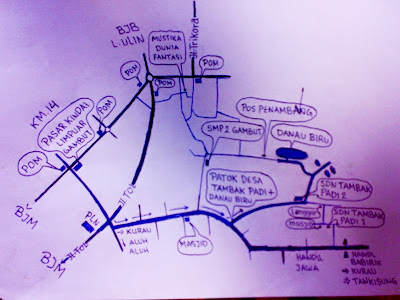 BJB
L.ULIN
Jl.Trikora
MUSTIKA
DUNIA
FANTASI
POM
POM
POM
KM.14
POM
PASAR KINDAI
LIMPUAR
GAMBUT
POM
POS PENAMBANG
SMP 2 GAMBUT
DANAU BIRU
PATOK DESA
TAMBAK PADI +
DANAU BIRU
SDN TAMBAK
PADI 2
Langgar
masjid
SDN TAMBAK
PADI 1
BJM
PLN
BJM
→ KURAU
→ ALUH
ALUH
MASJID
HANDIL
JAWA
HANDIL
BABIRIK
→ KURAU
→ TANKISUNG